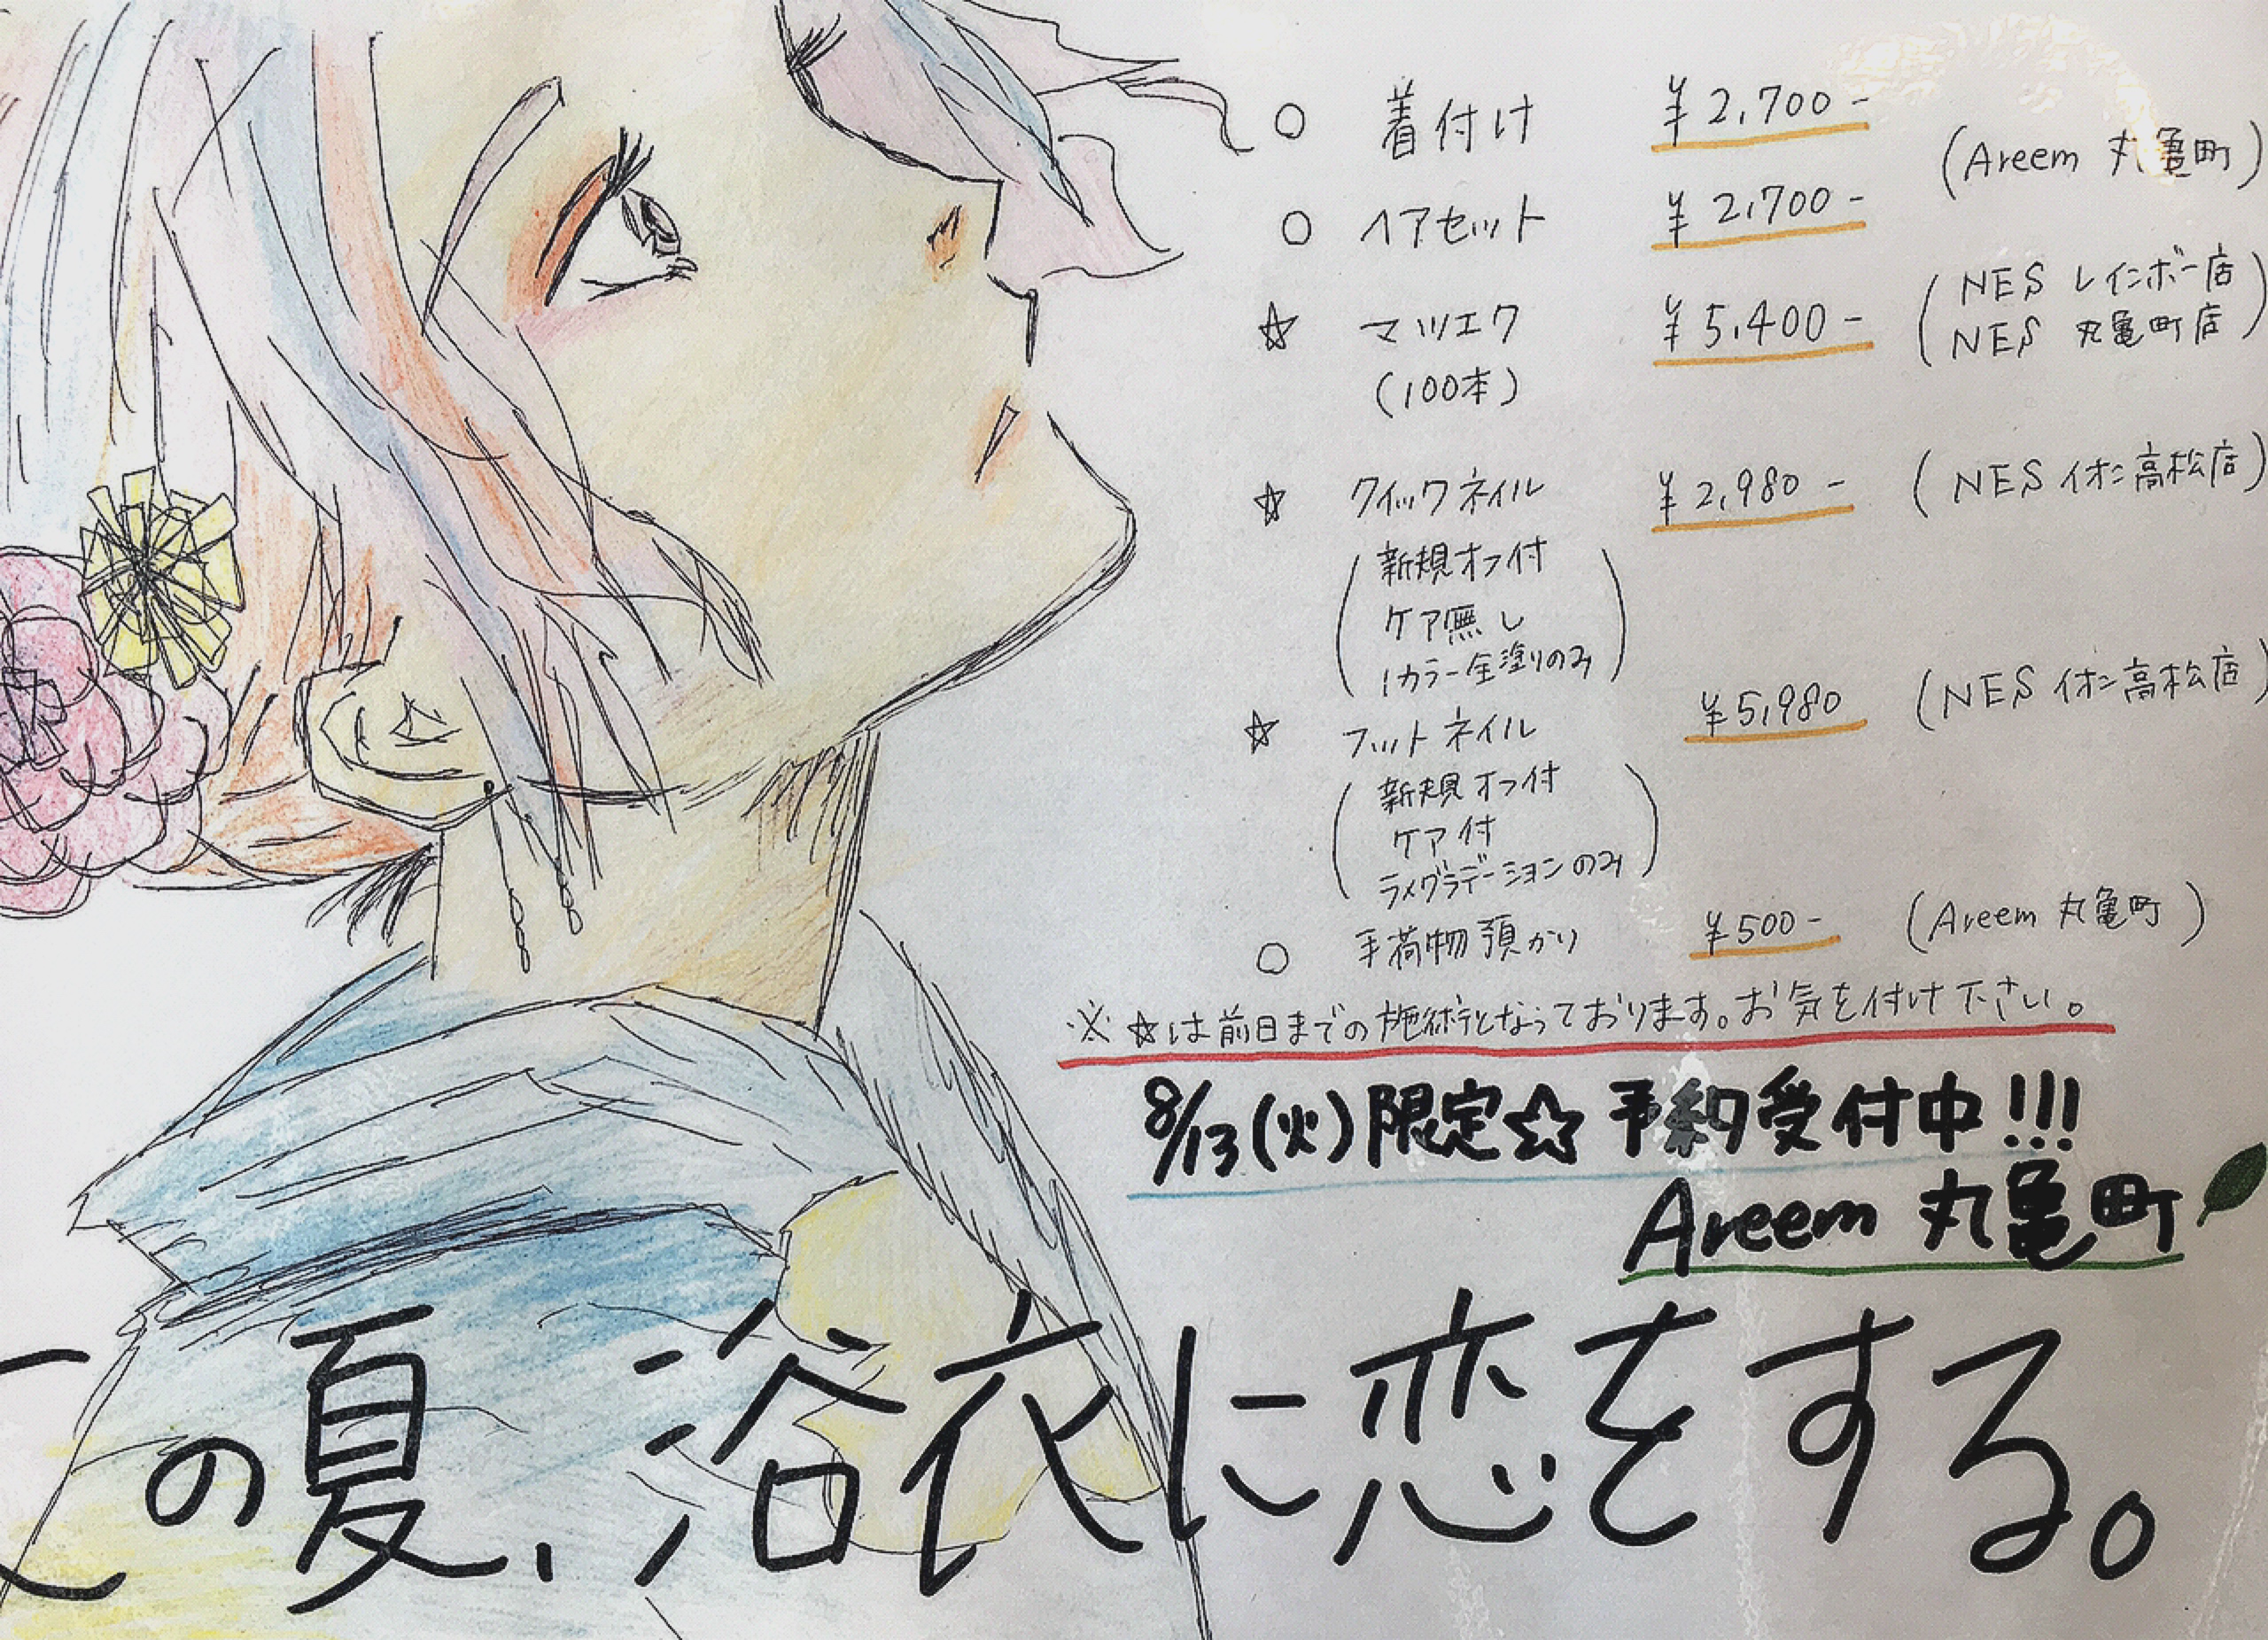 ○ 着付け ¥2,700-
(Areem 丸亀町)
○ ヘアセット ¥2,700-
☆ マツエク ¥5,400- (NES レインボー店
NES 丸亀町店)
(100本)
☆ クイックネイル ¥2,980- (NES イオン高松店)
(新規オフ付
ケア無し
1カラー全塗りのみ)
☆ フットネイル ¥5,980 (NES イオン高松店)
(新規オフ付
ケア付
ラメグラデーションのみ)
○ 手荷物預かり ¥500- (Areem 丸亀町)
※☆は前日までの施術となっております。お気を付け下さい。
8/13(火)限定☆予約受付中!!!
Areem 丸亀町
この夏、浴衣に恋をする。